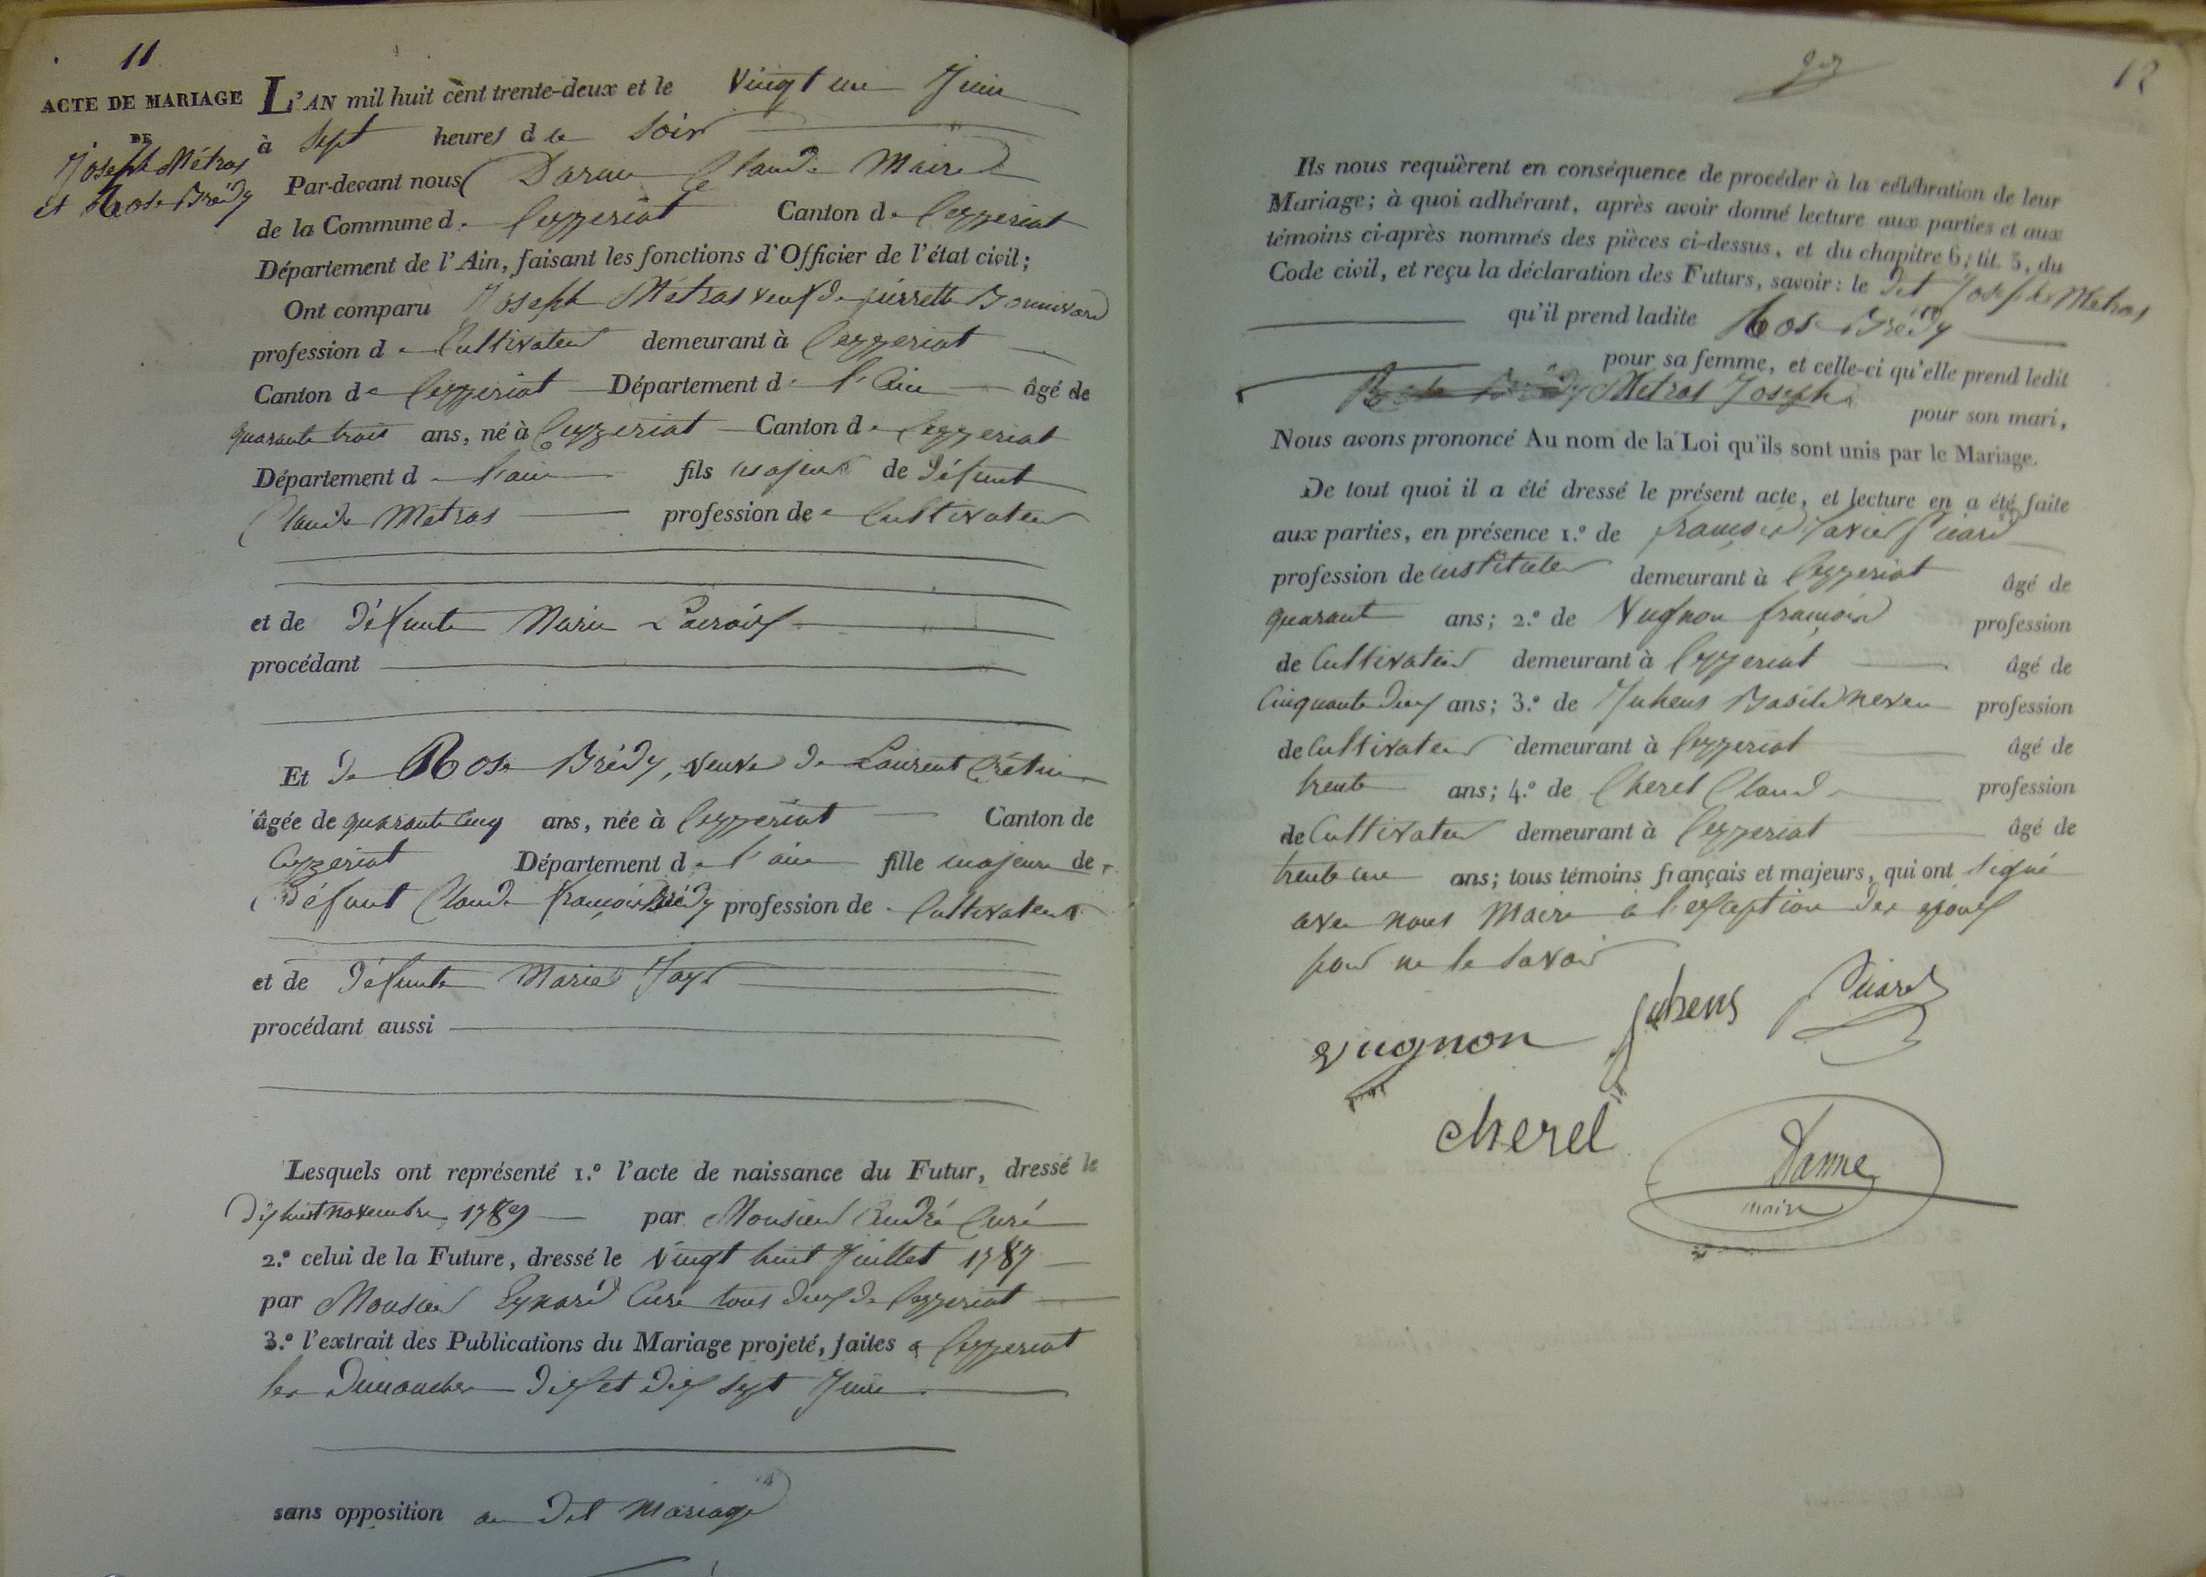 11
ACTE DE MARIAGE
DE
Joseph Métras
et Rose Brédy
L'AN mil huit cent trente-deux et le vingt un Juin
à sept heures d u soir
Par-devant nous Claude Maire
de la Commune d e Ceyzeriat Canton d e Ceyzeriat
Département de l'Ain, faisant les fonctions d'Officier de l'état civil;
Ont comparu Joseph Métras veuf de pierrette Bonnivard
profession d e Cultivateur demeurant à Ceyzeriat
Canton d e Ceyzeriat Département d e l'Ain âgé de
quarante trois ans, né à Ceyzeriat Canton d e Ceyzeriat
Département d e l'ain fils majeur de défunt
Claude Métras profession de Cultivateur
et de défunte Marie Lacroix
procédant
Et de Rose Brédy, veuve de Laurent Crétin
âgée de quarante cinq ans, née à Ceyzeriat Canton de
Ceyzeriat Département d e l'ain fille majeure de
défunt Claude françois Brédy profession de Cultivateur
et de défunte Marie
procédant aussi
Lesquels ont représenté 1.° l'acte de naissance du Futur, dressé le
dix huit novembre 1789 par Monsieur André Curé
2.° celui de la Future, dressé le vingt huit Juillet 1787
par Monsieur Eynard Curé tous deux de Ceyzeriat
3.° l'extrait des Publications du Mariage projeté, faites a Ceyzeriat
les Dimanches dix et dix sept Juin
sans opposition au dit mariage
12
Ils nous requièrent en conséquence de procéder à la célébration de leur
Mariage; à quoi adhérant, après avoir donné lecture aux parties et aux
témoins ci-après nommés des pièces ci-dessus, et du chapitre 6, tit. 5, du
Code civil, et reçu la déclaration des Futurs, savoir: le dit Joseph Métras
qu'il prend ladite Rose Brédy
pour sa femme, et celle-ci qu'elle prend ledit
Métras Joseph
pour son mari,
Nous avons prononcé Au nom de la Loi qu'ils sont unis par le Mariage.
De tout quoi il a été dressé le présent acte, et lecture en a été faite
aux parties, en présence 1.° de françois Xavier Picard
profession de instituteur demeurant à Ceyzeriat âgé de
quarante ans; 2.° de Vugnon françois profession
de Cultivateur demeurant à Ceyzeriat âgé de
Cinquante deux ans; 3.° de Juhens Basile neveu profession
de Cultivateur demeurant à Ceyzeriat âgé de
trente ans; 4.° de Cherel Claude profession
de Cultivateur demeurant à Ceyzeriat âgé de
trente un ans; tous témoins français et majeurs, qui ont signé
avec nous Maire a l'exception des epoux
pour ne le savoir
vugnon Juhens Picard
cherel
maire